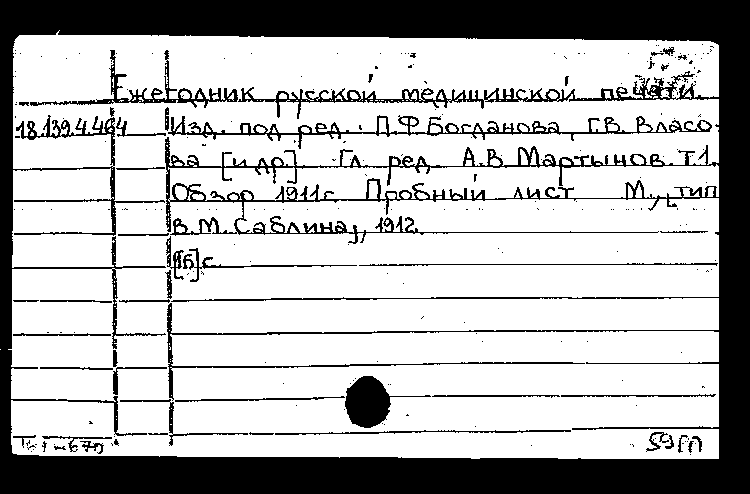 Ежегодник русской медицинской печати.
18.139.4.464 Изд. под ред.: П.Ф. Богданова, Г.В. Власо-
ва [и др.] Гл. ред. А.В. Мартынов. Т.1.
Обзор 1911г. Пробный лист. М., [тип.
В.М. Саблина], 1912.
[16] с.
59М